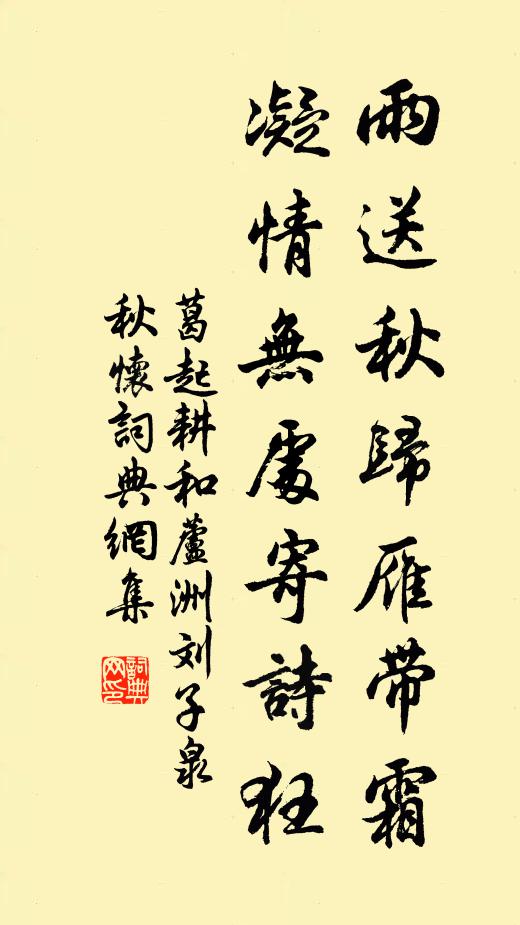 雨送秋歸雁帶霜
凝情無處寄詩狂
葛起耕和蘆洲刘子泉
秋懷詞典網集
詞典网印